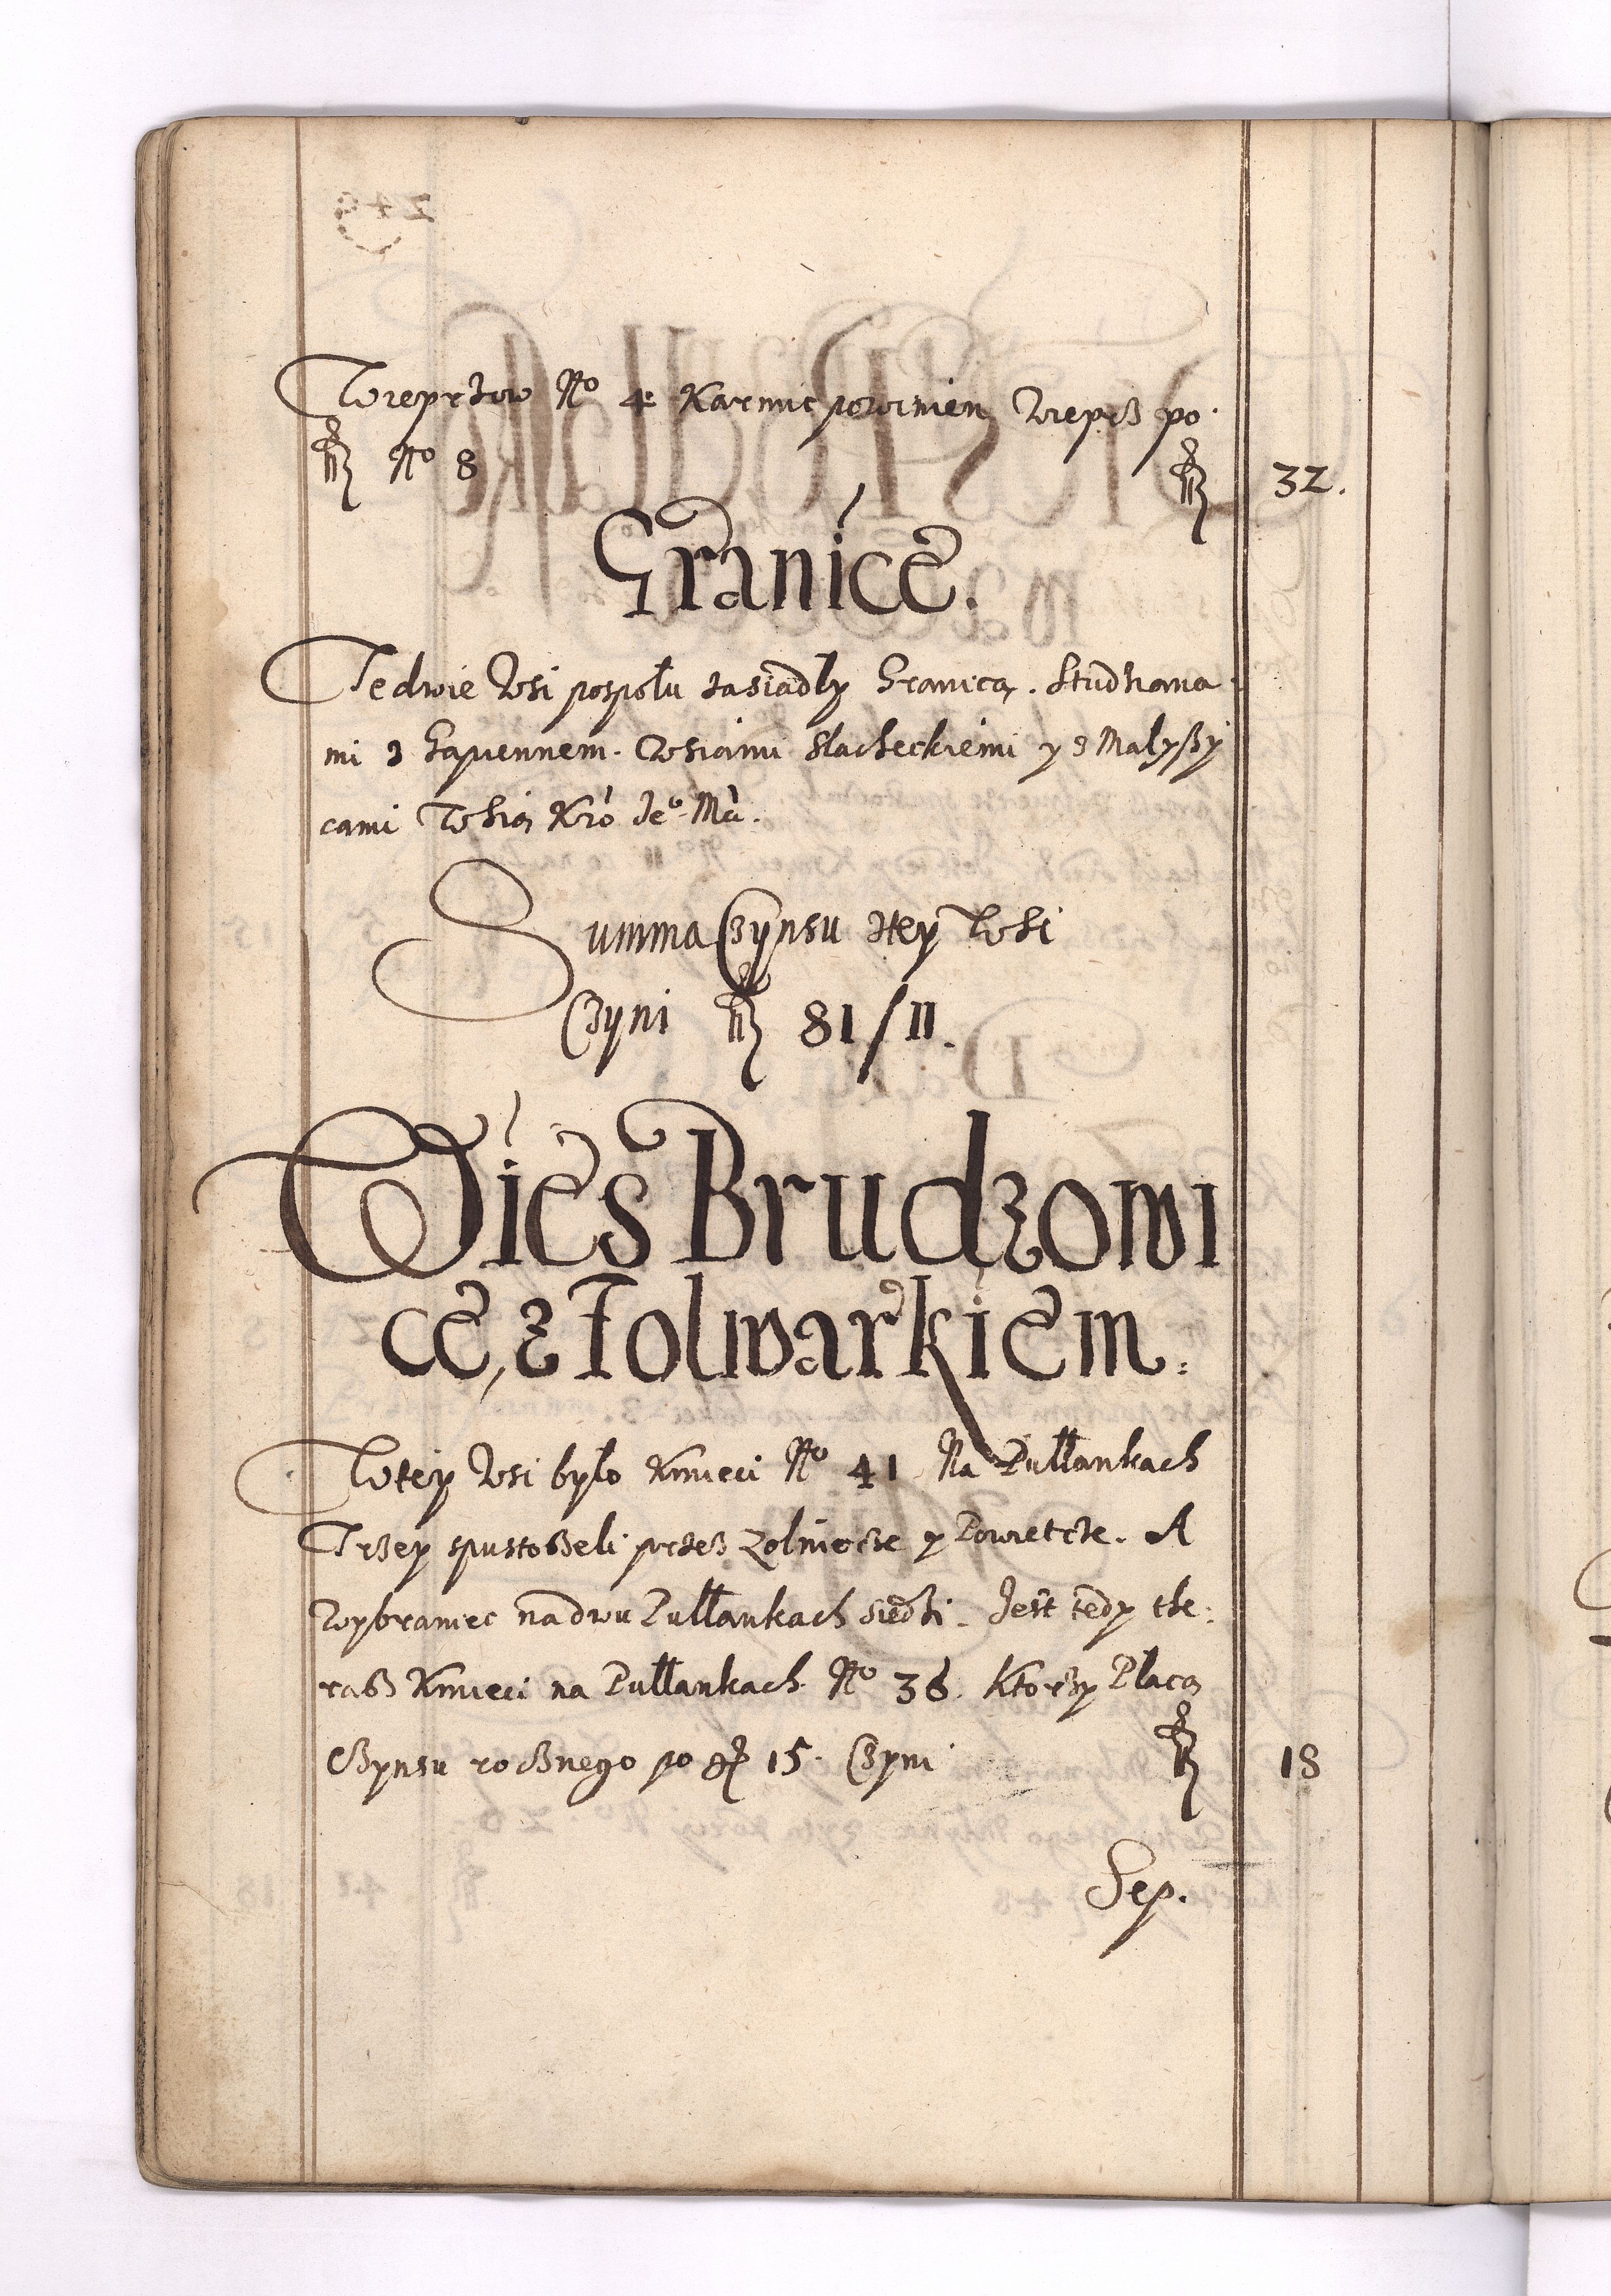 Wieprzow No 4 Karmic powinien Wieprz po
fl No 8 fl 32.
Granice.
Te dwie Wsi pospołu zasiadły Granicą. Studziana
mi z Gapiennem. Wsiami Slacheckiemi y z Małyßy
cami Wsią Kró Jeo Mći.
Summa Czynsu ztey Wsi
Czyni fl 81/11.
Wies Brudzowi
ce, z Folwarkiem.
Wtey Wsi było Kmieci No 41 Na Pułłankach
Trzey spustoszeli przez Zolnierze y Powietrze. A
Wybraniec na dwu Pułłankach siedzi. Jest tedy the:
raß Kmieci na Pułłankach No 36. Ktorzy Płacą
Czynsu rocznego po gr 15. Czyni fl 18
Sep.